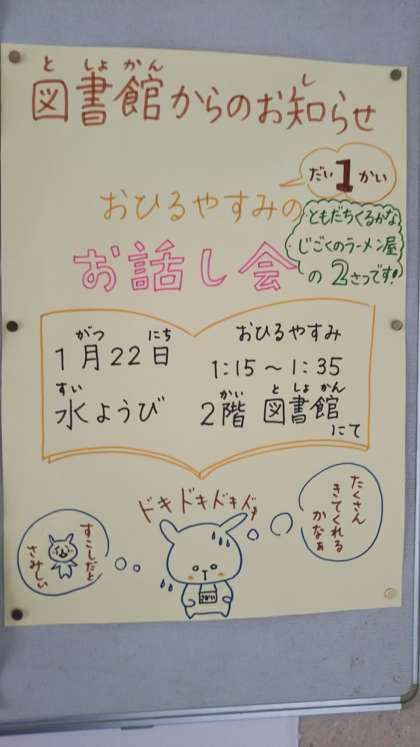 図書館からのお知らせ
としょかん
し
だい1かい
おひるやすみの
お話し会
ともだちくるかな
じごくのラーメン屋
の2さつです!
1月22日
がつ
にち
水ようび
すい
おひるやすみ
1:15〜1:35
2階 図書館
かい としょかん
にて
ドキドキドキドキ
たくさん
きてくれる
かなぁ
すこしだと
さみしい